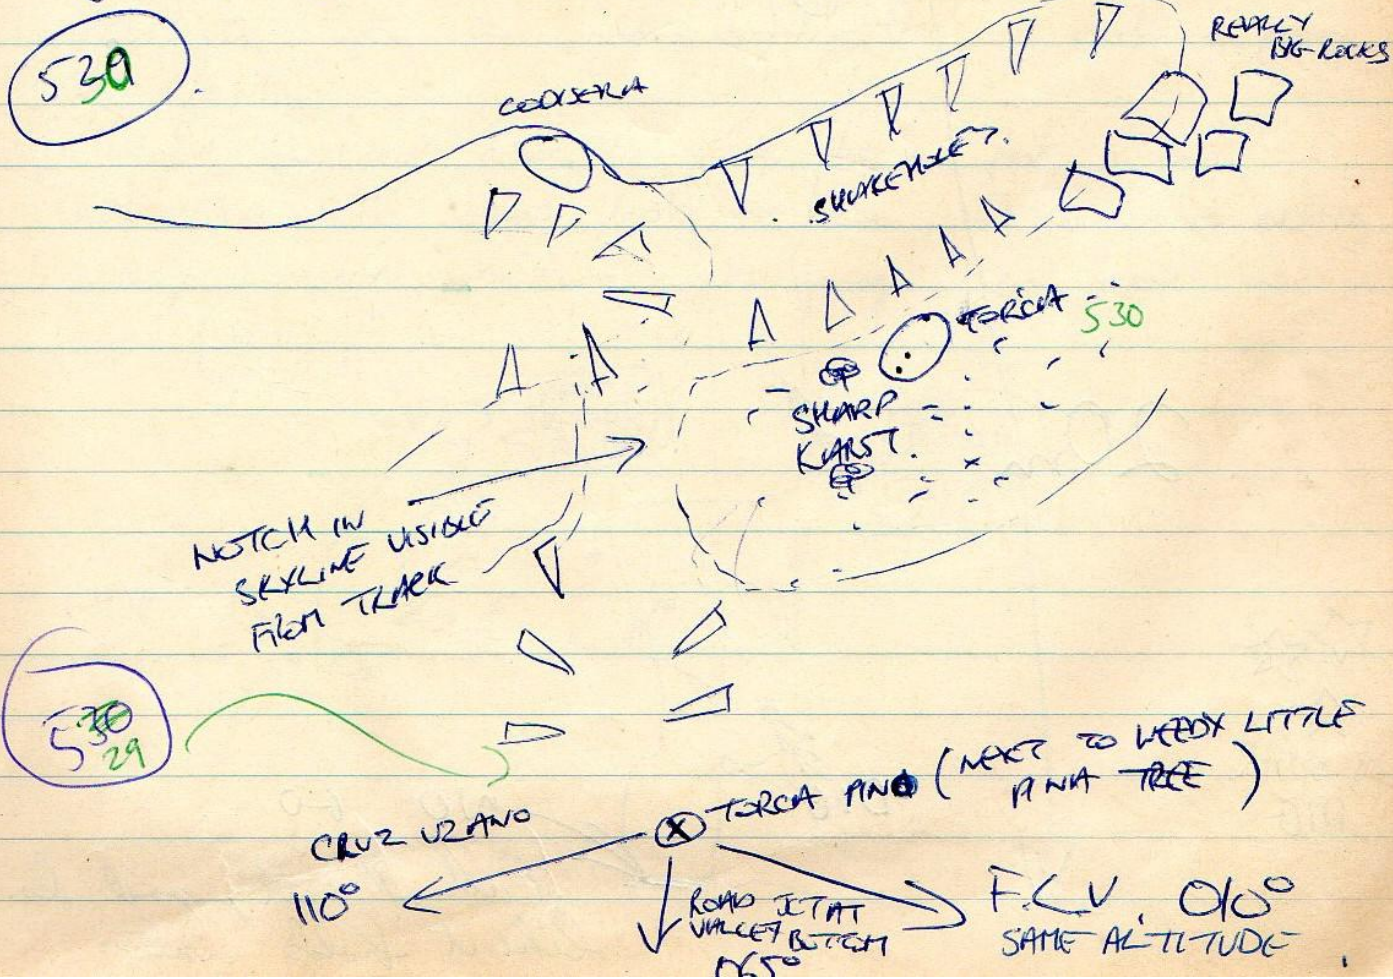 530
REALLY
BIG ROCKS
CODISERA
SHAKEHOLE?
TORCA
530
SHARP
KARST.
NOTCH IN
SKYLINE VISIBLE
FROM TRACK
530
29
TORCA PINO (NEXT TO WEEDY LITTLE
PINA TREE)
CRUZ UZANO
110°
ROAD JCT AT
VALLEY BOTTOM
065°
F.C.V. 010°
SAME ALTITUDE